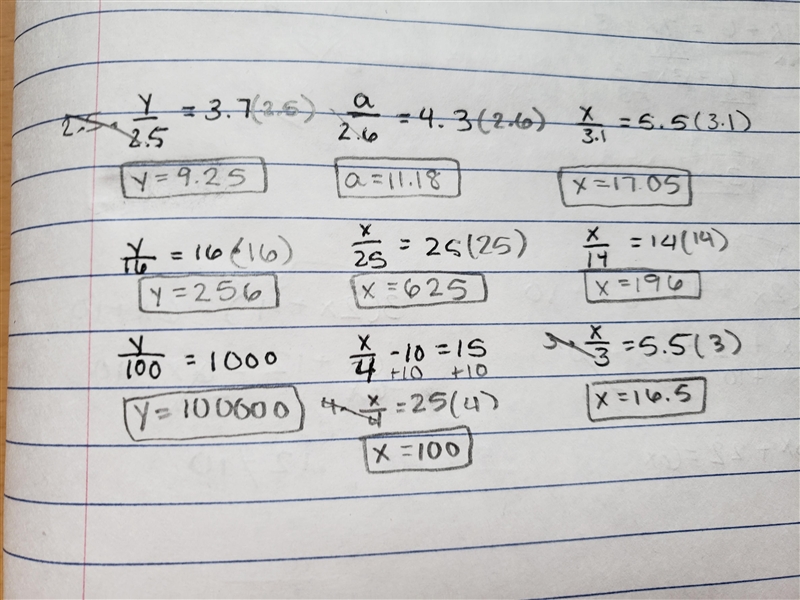 2.5 · y/2.5 = 3.7(2.5) a/2.6 = 4.3(2.6) x/3.1 = 5.5(3.1)
y = 9.25 a = 11.18 x = 17.05
y/16 = 16(16) x/25 = 25(25) x/14 = 14(14)
y = 256 x = 625 x = 196
y/100 = 1000 x/4 - 10 = 15 3 · x/3 = 5.5(3)
+10 +10
y = 100000 4 · x/4 = 25(4) x = 16.5
x = 100